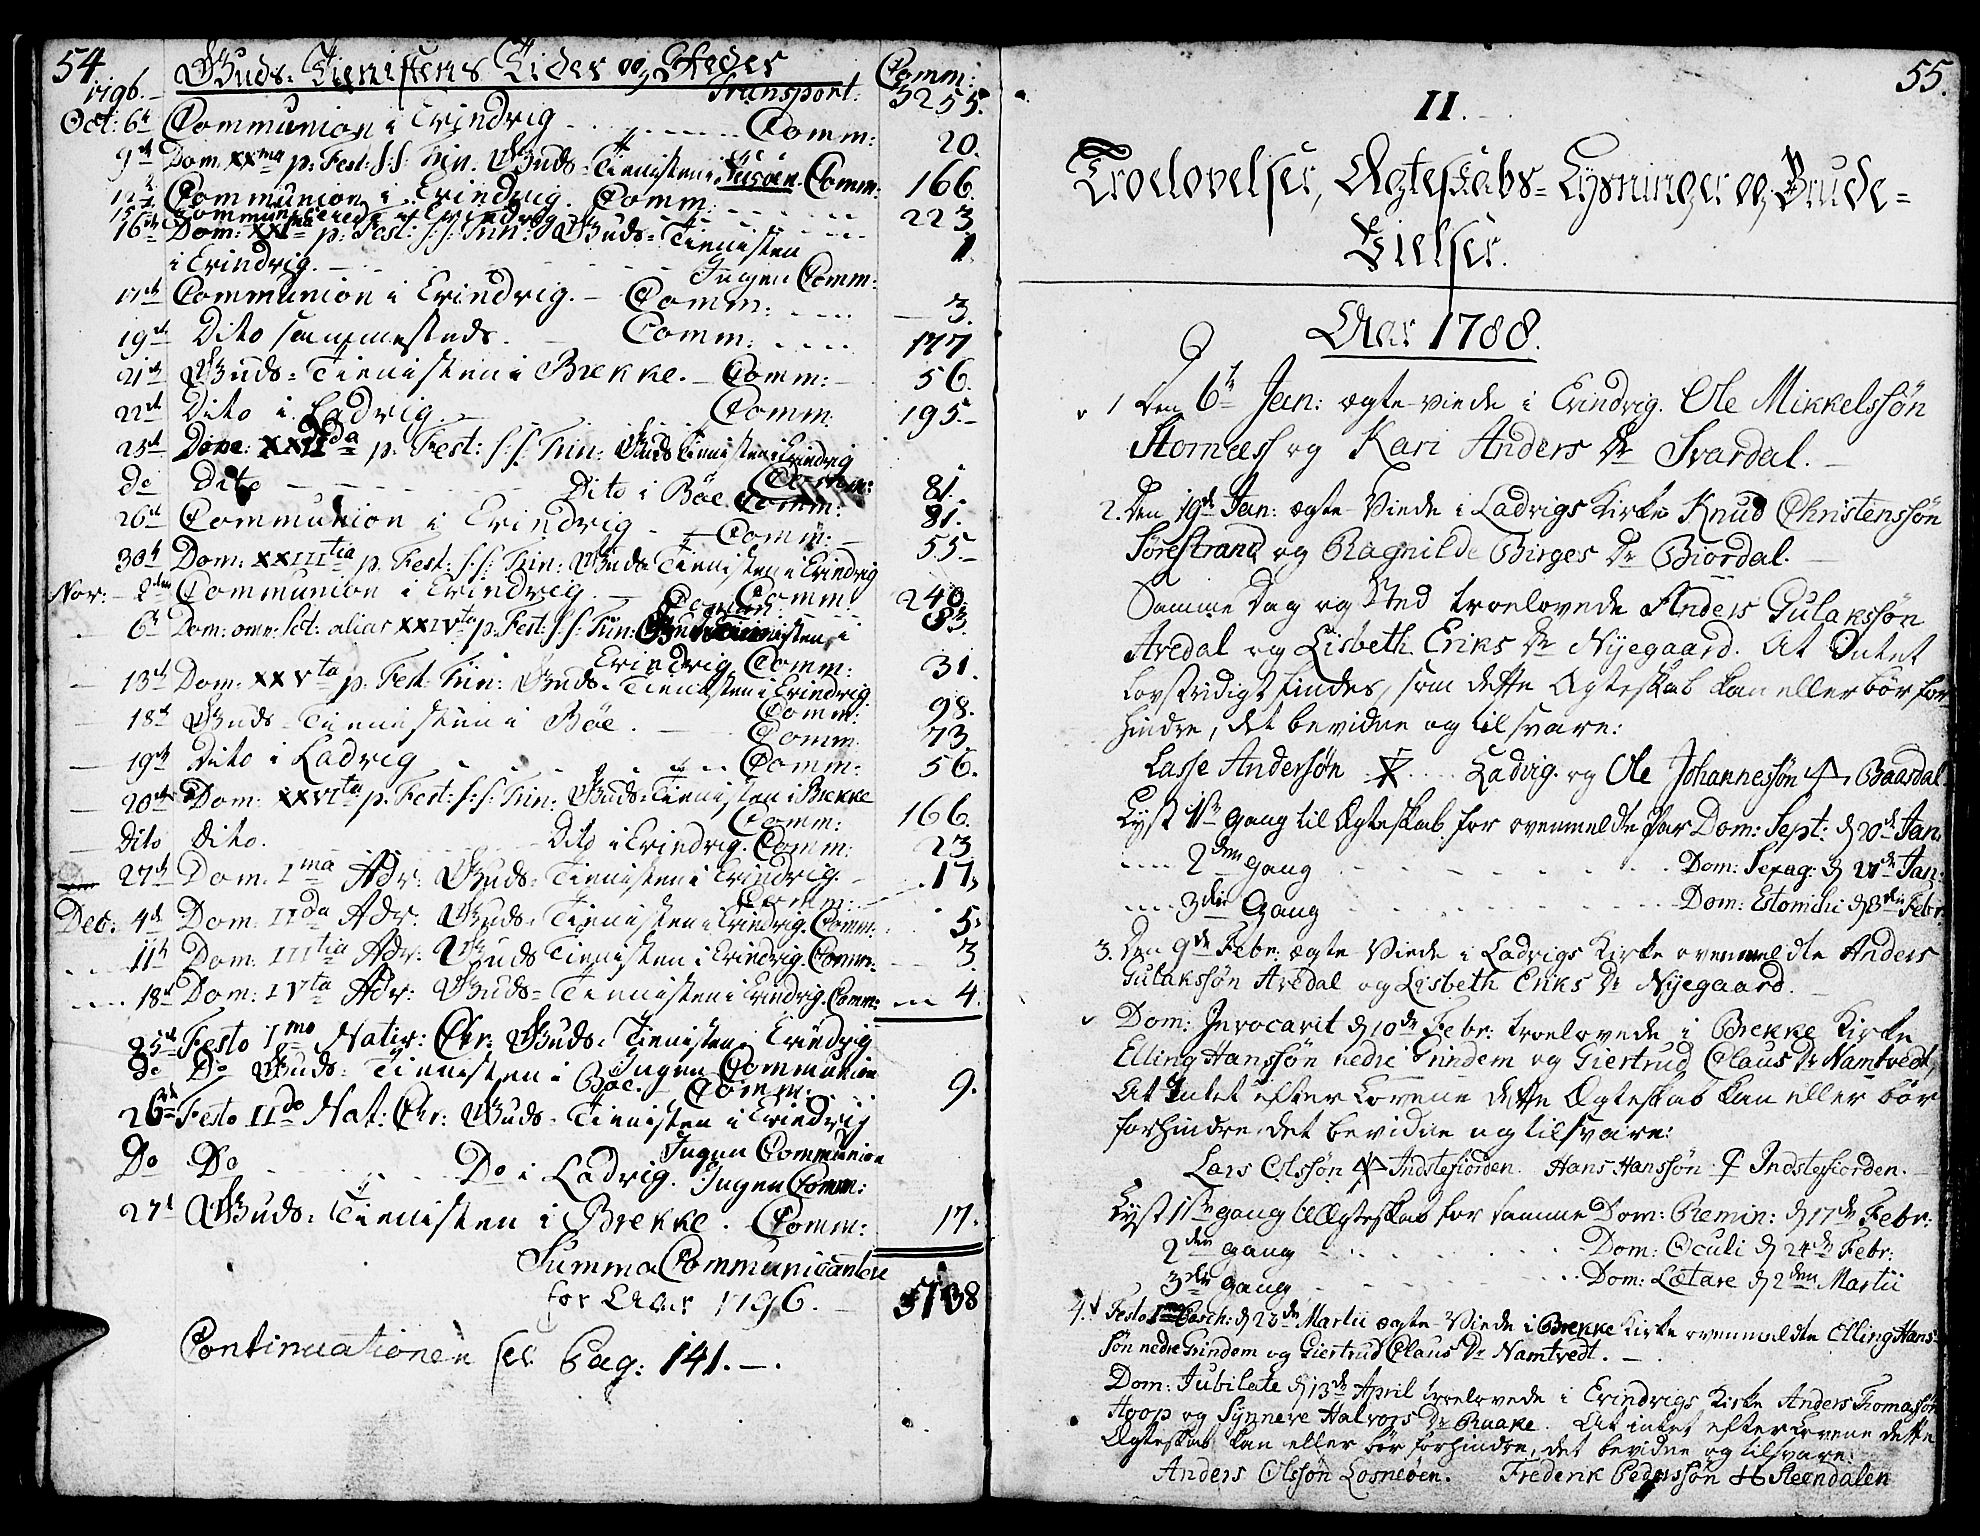 54. Guds-Tienistens Tider og Steder Comm:
1796. Transport: 3255.
Oct: 6te Communion i Evindvig Comm: 20.
9de Dom: XXma p: Fest: S:S: Trin. Guds-Tienisten i Husøen. Comm: 166.
12te Communion i Evindvig. Comm: 223
15de
16de Dom: XXIma p: Fest: S:S: Trin: Guds-Tienisten 1.
i Evindvig. Ingen Comm:
17de Communion i Evindvig. Comm: 3.
19de Dito sammesteds. Comm: 177
21de Guds-Tienisten i Brekke. Comm: 56.
22de Dito i Ladvig. Comm: 195.
23de Dom: XXIIda p: Fest: S:S: Trin: Guds Tienisten i Evindvig
do Dito Dito i Böe Comm: 81.
26de Communion i Evindvig Comm: 55
30te Dom: XXIIItia p. Fest: S:S: Trin: Guds Tienisten i Evindvig
Nov: 2den Communion i Evindvig. Comm: 240.
6te Dom: omn: Sct: alias XXIVta p. Fest: S:S: Trin: Guds Tienisten i 83.
Evindvig. Comm: 31.
13de Dom: XXVta p. Fest: Trin: Guds-Tienisten i Evindvig
Comm: 98.
18de Guds-Tienisten i Böe. Comm: 73
19de Dito i Ladvig Comm: 56.
20de Dom: XXVIta p. Fest: S:S: Trin: Guds-Tienisten i Brekke
Comm: 166.
Dito Dito. Dito i Evindvig. Comm: 23
27de Dom. Ima Adv: Guds-Tienisten i Evindvig. 17.
Comm:
Dec: 4de Dom: IIda Adv: Guds-Tienisten i Evindvig. Comm: 5.
11te Dom: IIItia Adv: Guds Tienisten i Evindvig. Comm: 3.
18de Dom: IVta Adv: Guds-Tienisten i Evindvig. Comm: 4.
25de Festo Imo Nativ: Chr: Guds-Tienisten i Evindvig
Ingen Communion
do Do Guds-Tienisten i Böe. Comm: 9.
26de Festo IIdo Nat: Chr: Guds-Tienisten i Evindvig
Ingen Communion
Do Do Do i Ladvig. Ingen Comm:
27de Guds-Tienisten i Brekke. Comm: 17.
Summa Communicantere
for Aar 1796. 5738
Continuationen see Pag: 141.
55.
II.
Troelovelser, Ægteskabs-Lysninger og Brude-
Vielser.
Aar 1788.
1 Den 6te Jan: ægte-viede i Evindvig. Ole Mikkelssön
Stornæss og Kari Anders Dr Svardal.
2. Den 19de Jan: ægte-Viede i Ladvigs Kirke Knud Christenssön
Sørestrand og Ragnilde Birges Dr Biordal.
Samme Dag og Sted troelovede Anders Gulakssön
Aredal og Lisbeth Eriks Dr Nyegaard. At Intet
lovstridigt findes, som dette Ægteskab kan eller bör for
hindre, det bevidne og tilsvare:
Lasse Andersön Ladvig. og Ole Johannessön Baardal
Lyst 1ste Gang til Ægteskab for ovenmeldte Par Dom: Sept: d 20de Jan:
2den Gang Dom: Sexag: d 27de Jan:
3die Gang Dom: Estomihi d 3die Febr:
3. Den 9de Febr: ægte Viede i Ladvigs Kirke ovenmeldte Anders
Gulakssön Aredal og Lisbeth Eriks Dr Nyegaard.
Dom: Invocavit d 10de Febr: troelovede i Brekke Kirke
Elling Hanssön nedre Grindem og Giertrud Claus Dr Namtvedt,
At Intet efter Lovene dette Ægteskab kan eller bör
forhindre, det bevidne og tilsvare:
Lars Olssön Indstefiorden. Hans Hanssön Indstefiorden.
Lyst 1ste gang til Ægteskab for samme Dom: Remin: d 17de Febr:
2den gang Dom: Oculi d 24de Febr:
3die gang Dom: Lætare d 2den Martii
4. Festo Imo Pasch: d 23de Martii ægte-Viede i Brekke Kirke ovenmeldte Elling Hans-
sön nedre Grindem og Giertrud Claus Dr Namtvedt.
Dom: Jubilate d 13de April troelovede i Evindvigs Kirke Anders Tomassön
Hoop og Synneve Halvors Dr Ruake. At intet efter Lovene dette
Ægteskab kan eller bör forhindre, det bevidne og tilsvare:
Anders Olssön Losneöen. Frederik Pederssön Steendalen